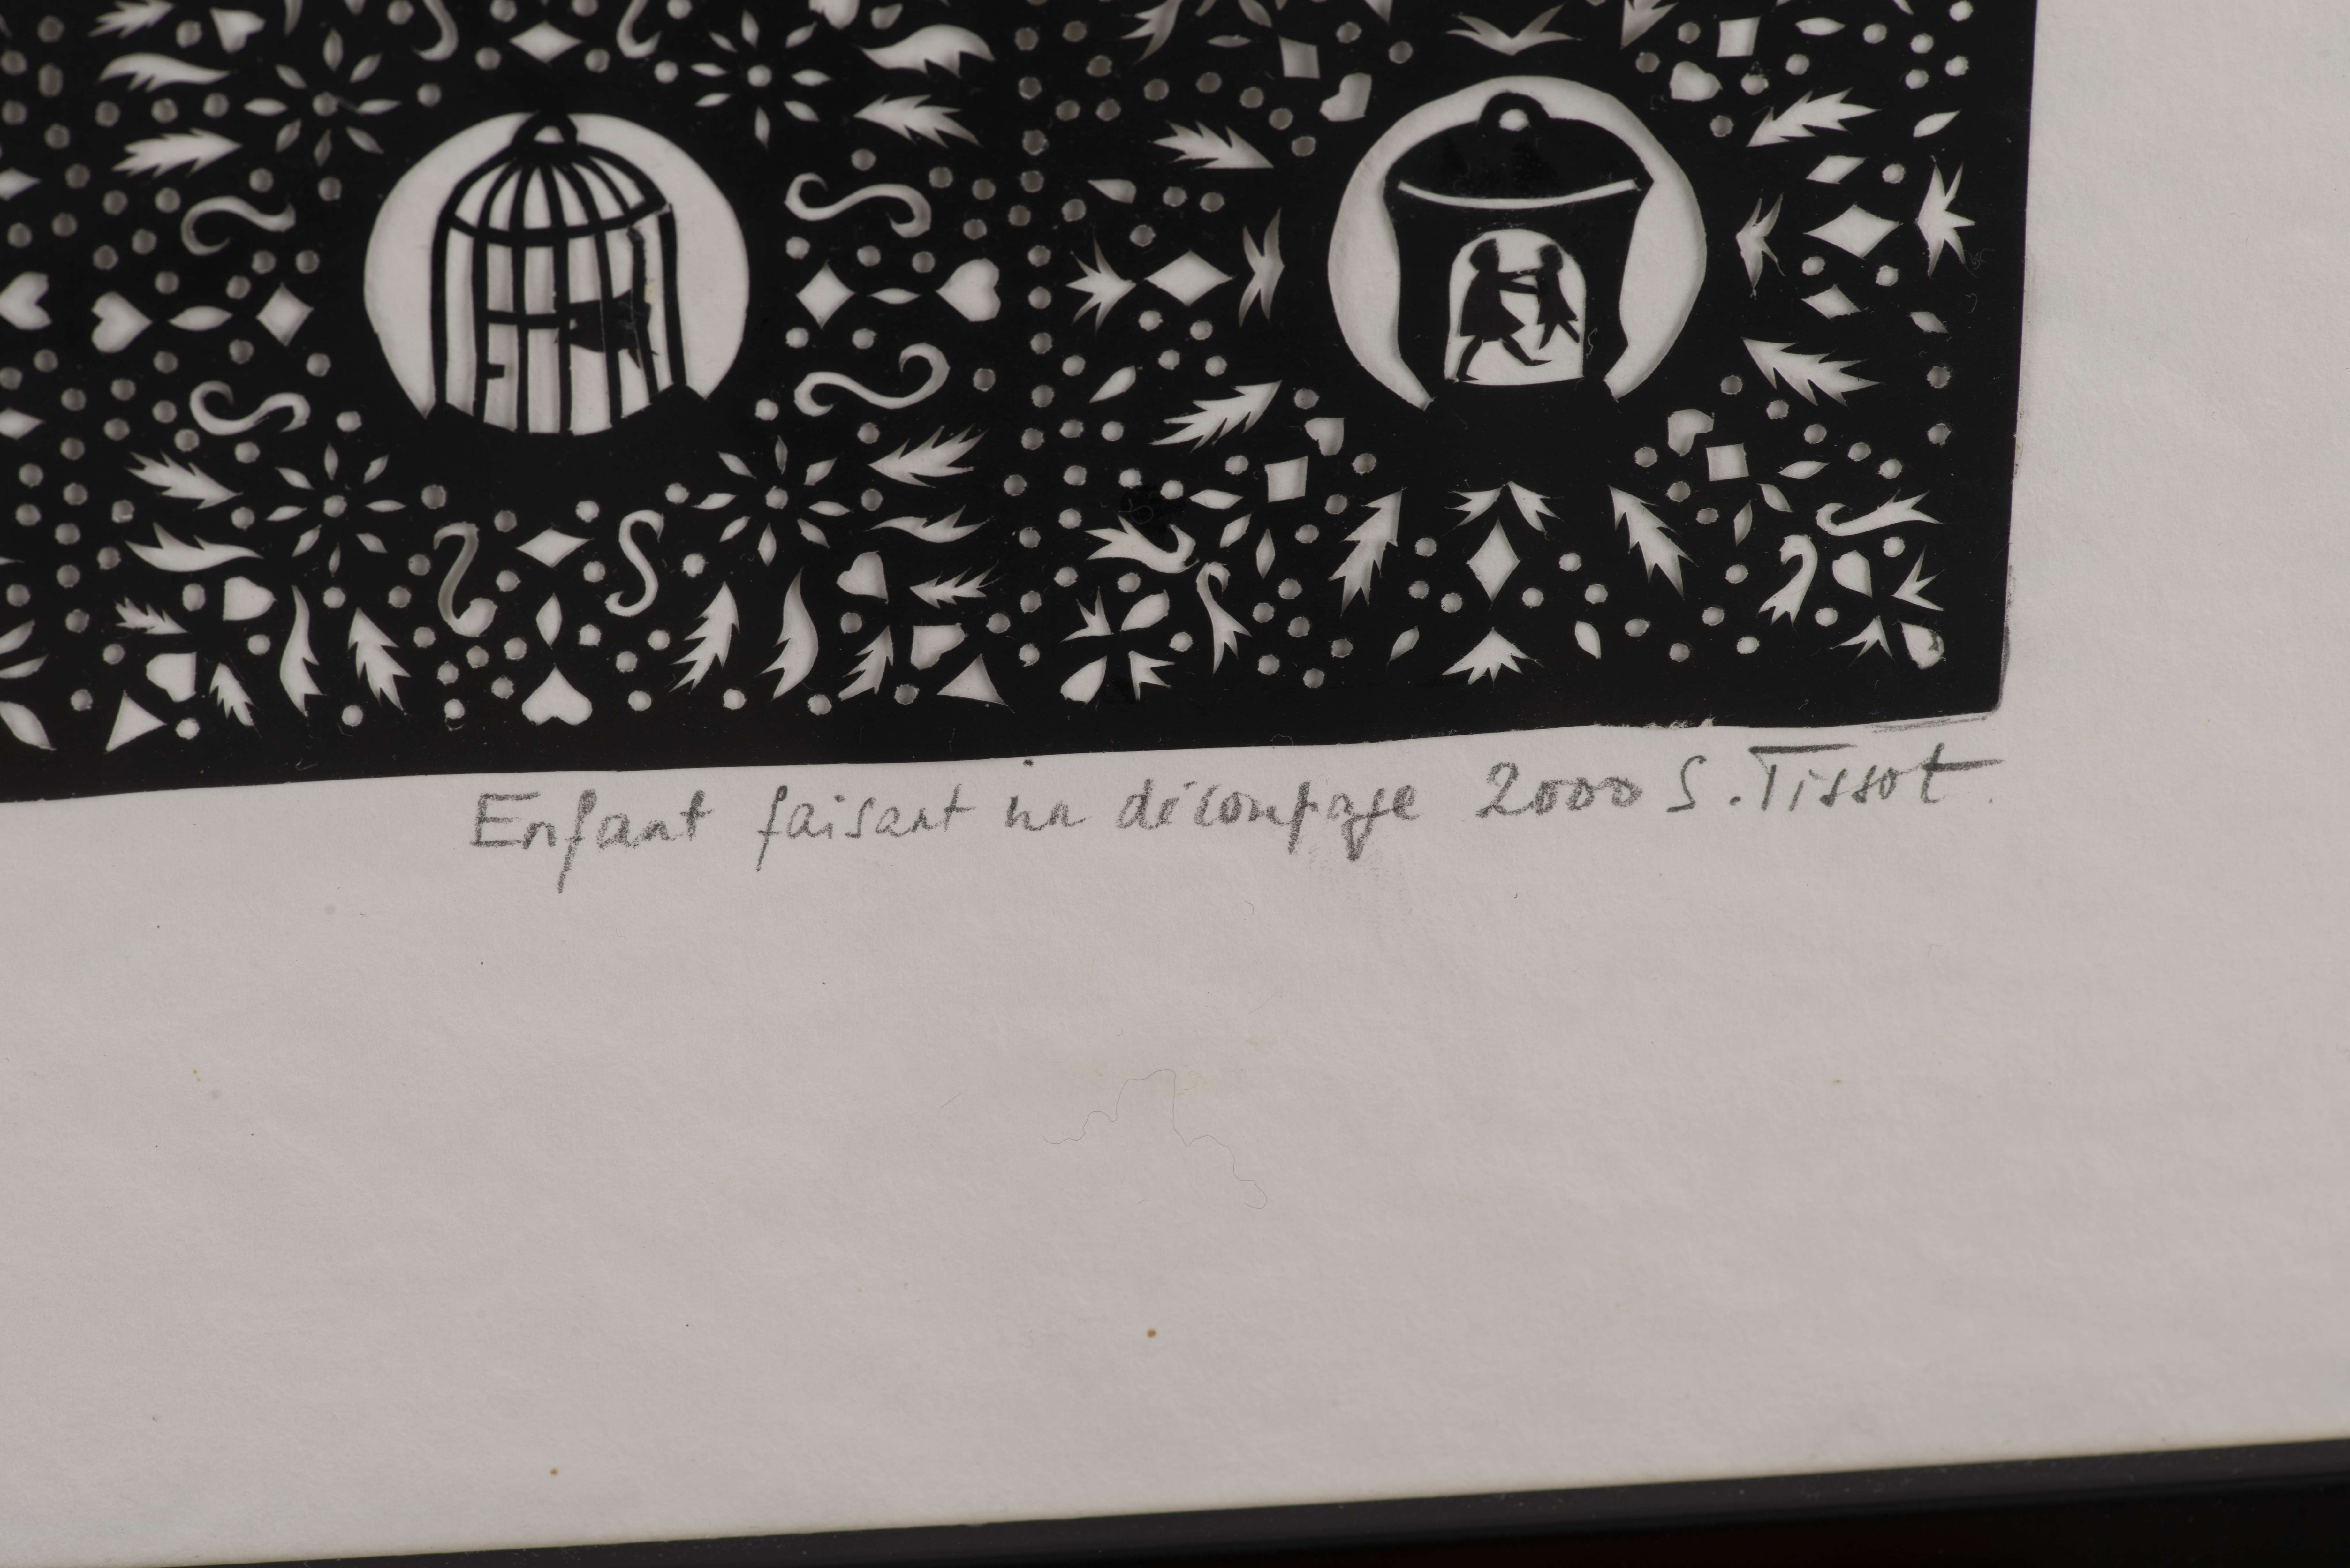 Enfant faisant un découpage 2000 S. Tissot